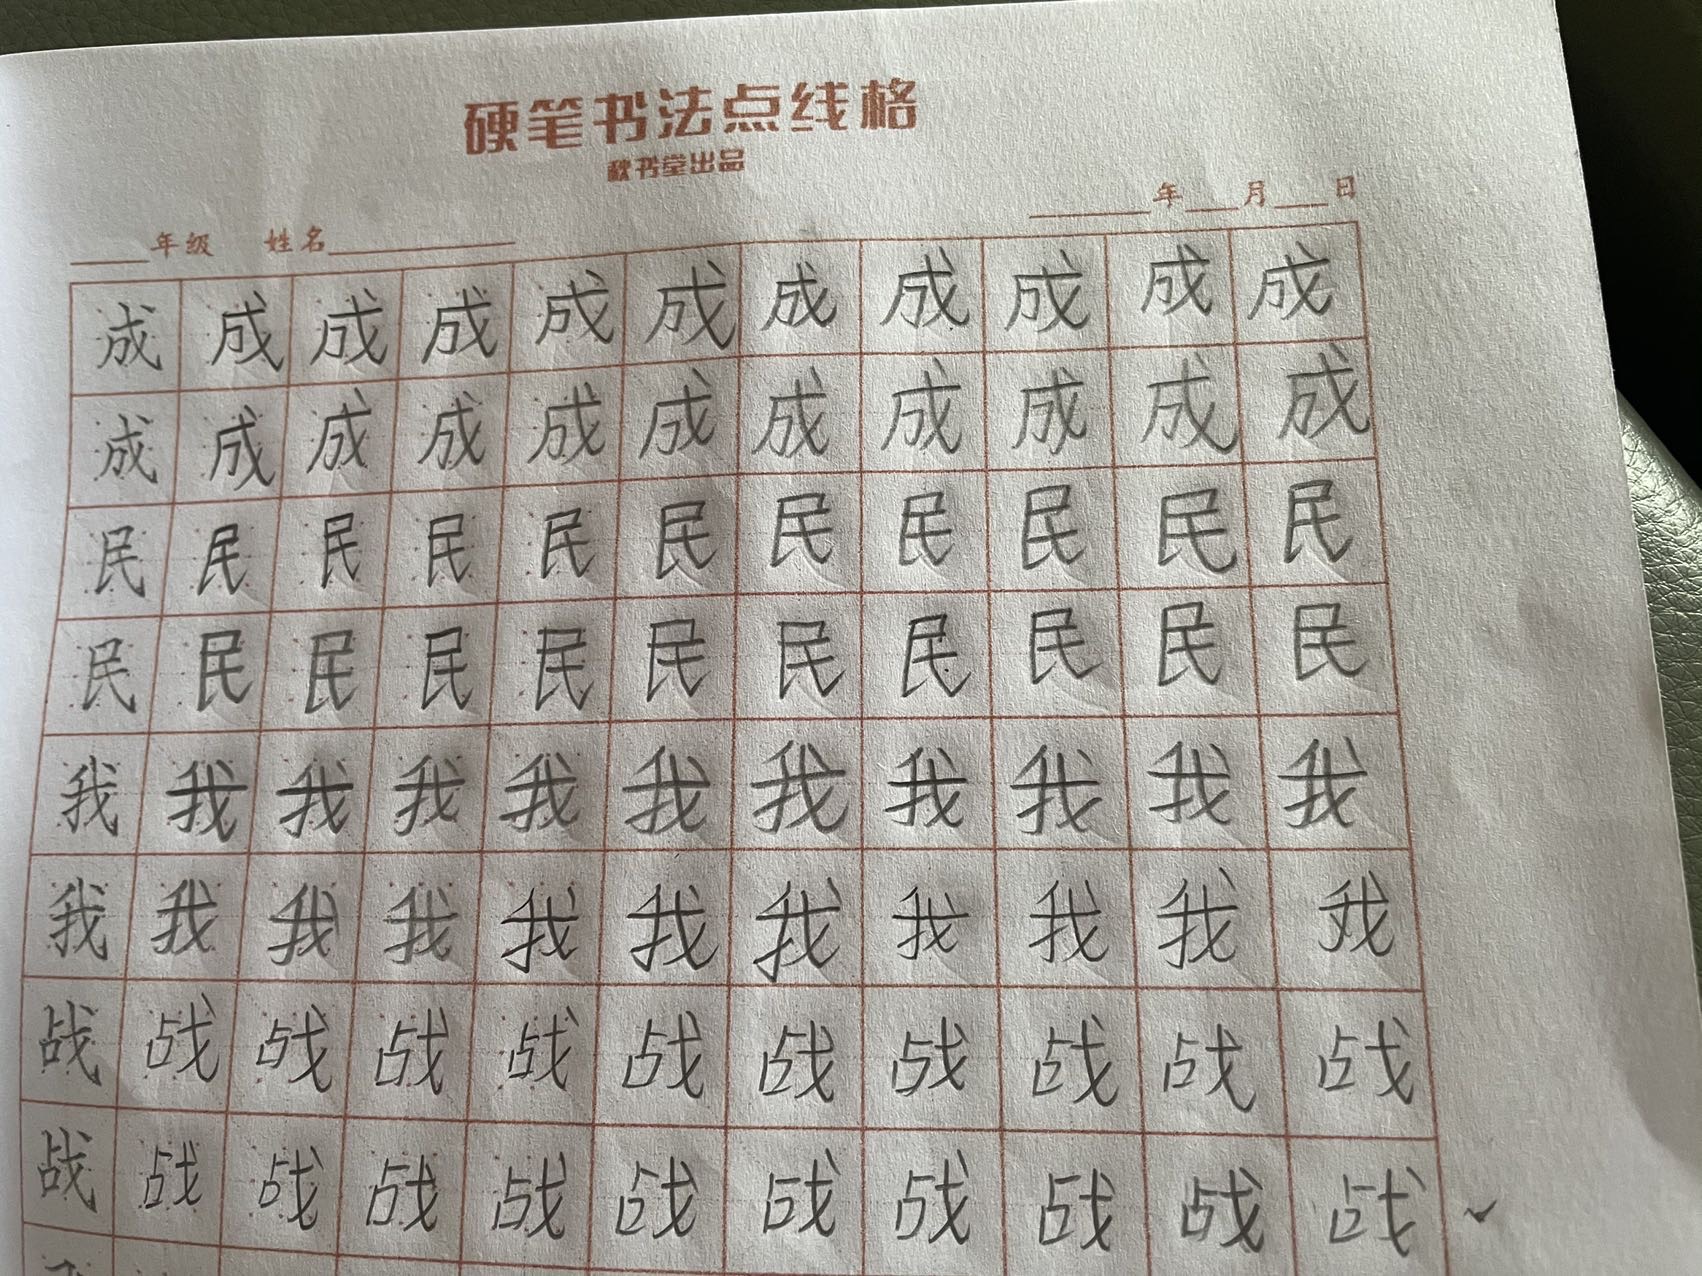 硬笔书法点线格
秋书堂出品
年级 姓名 年 月 日
成 成 成 成 成 成 成 成 成 成 成
成 成 成 成 成 成 成 成 成 成 成
民 民 民 民 民 民 民 民 民 民 民
民 民 民 民 民 民 民 民 民 民 民
我 我 我 我 我 我 我 我 我 我 我
我 我 我 我 我 我 我 我 我 我 我
战 战 战 战 战 战 战 战 战 战 战
战 战 战 战 战 战 战 战 战 战 战